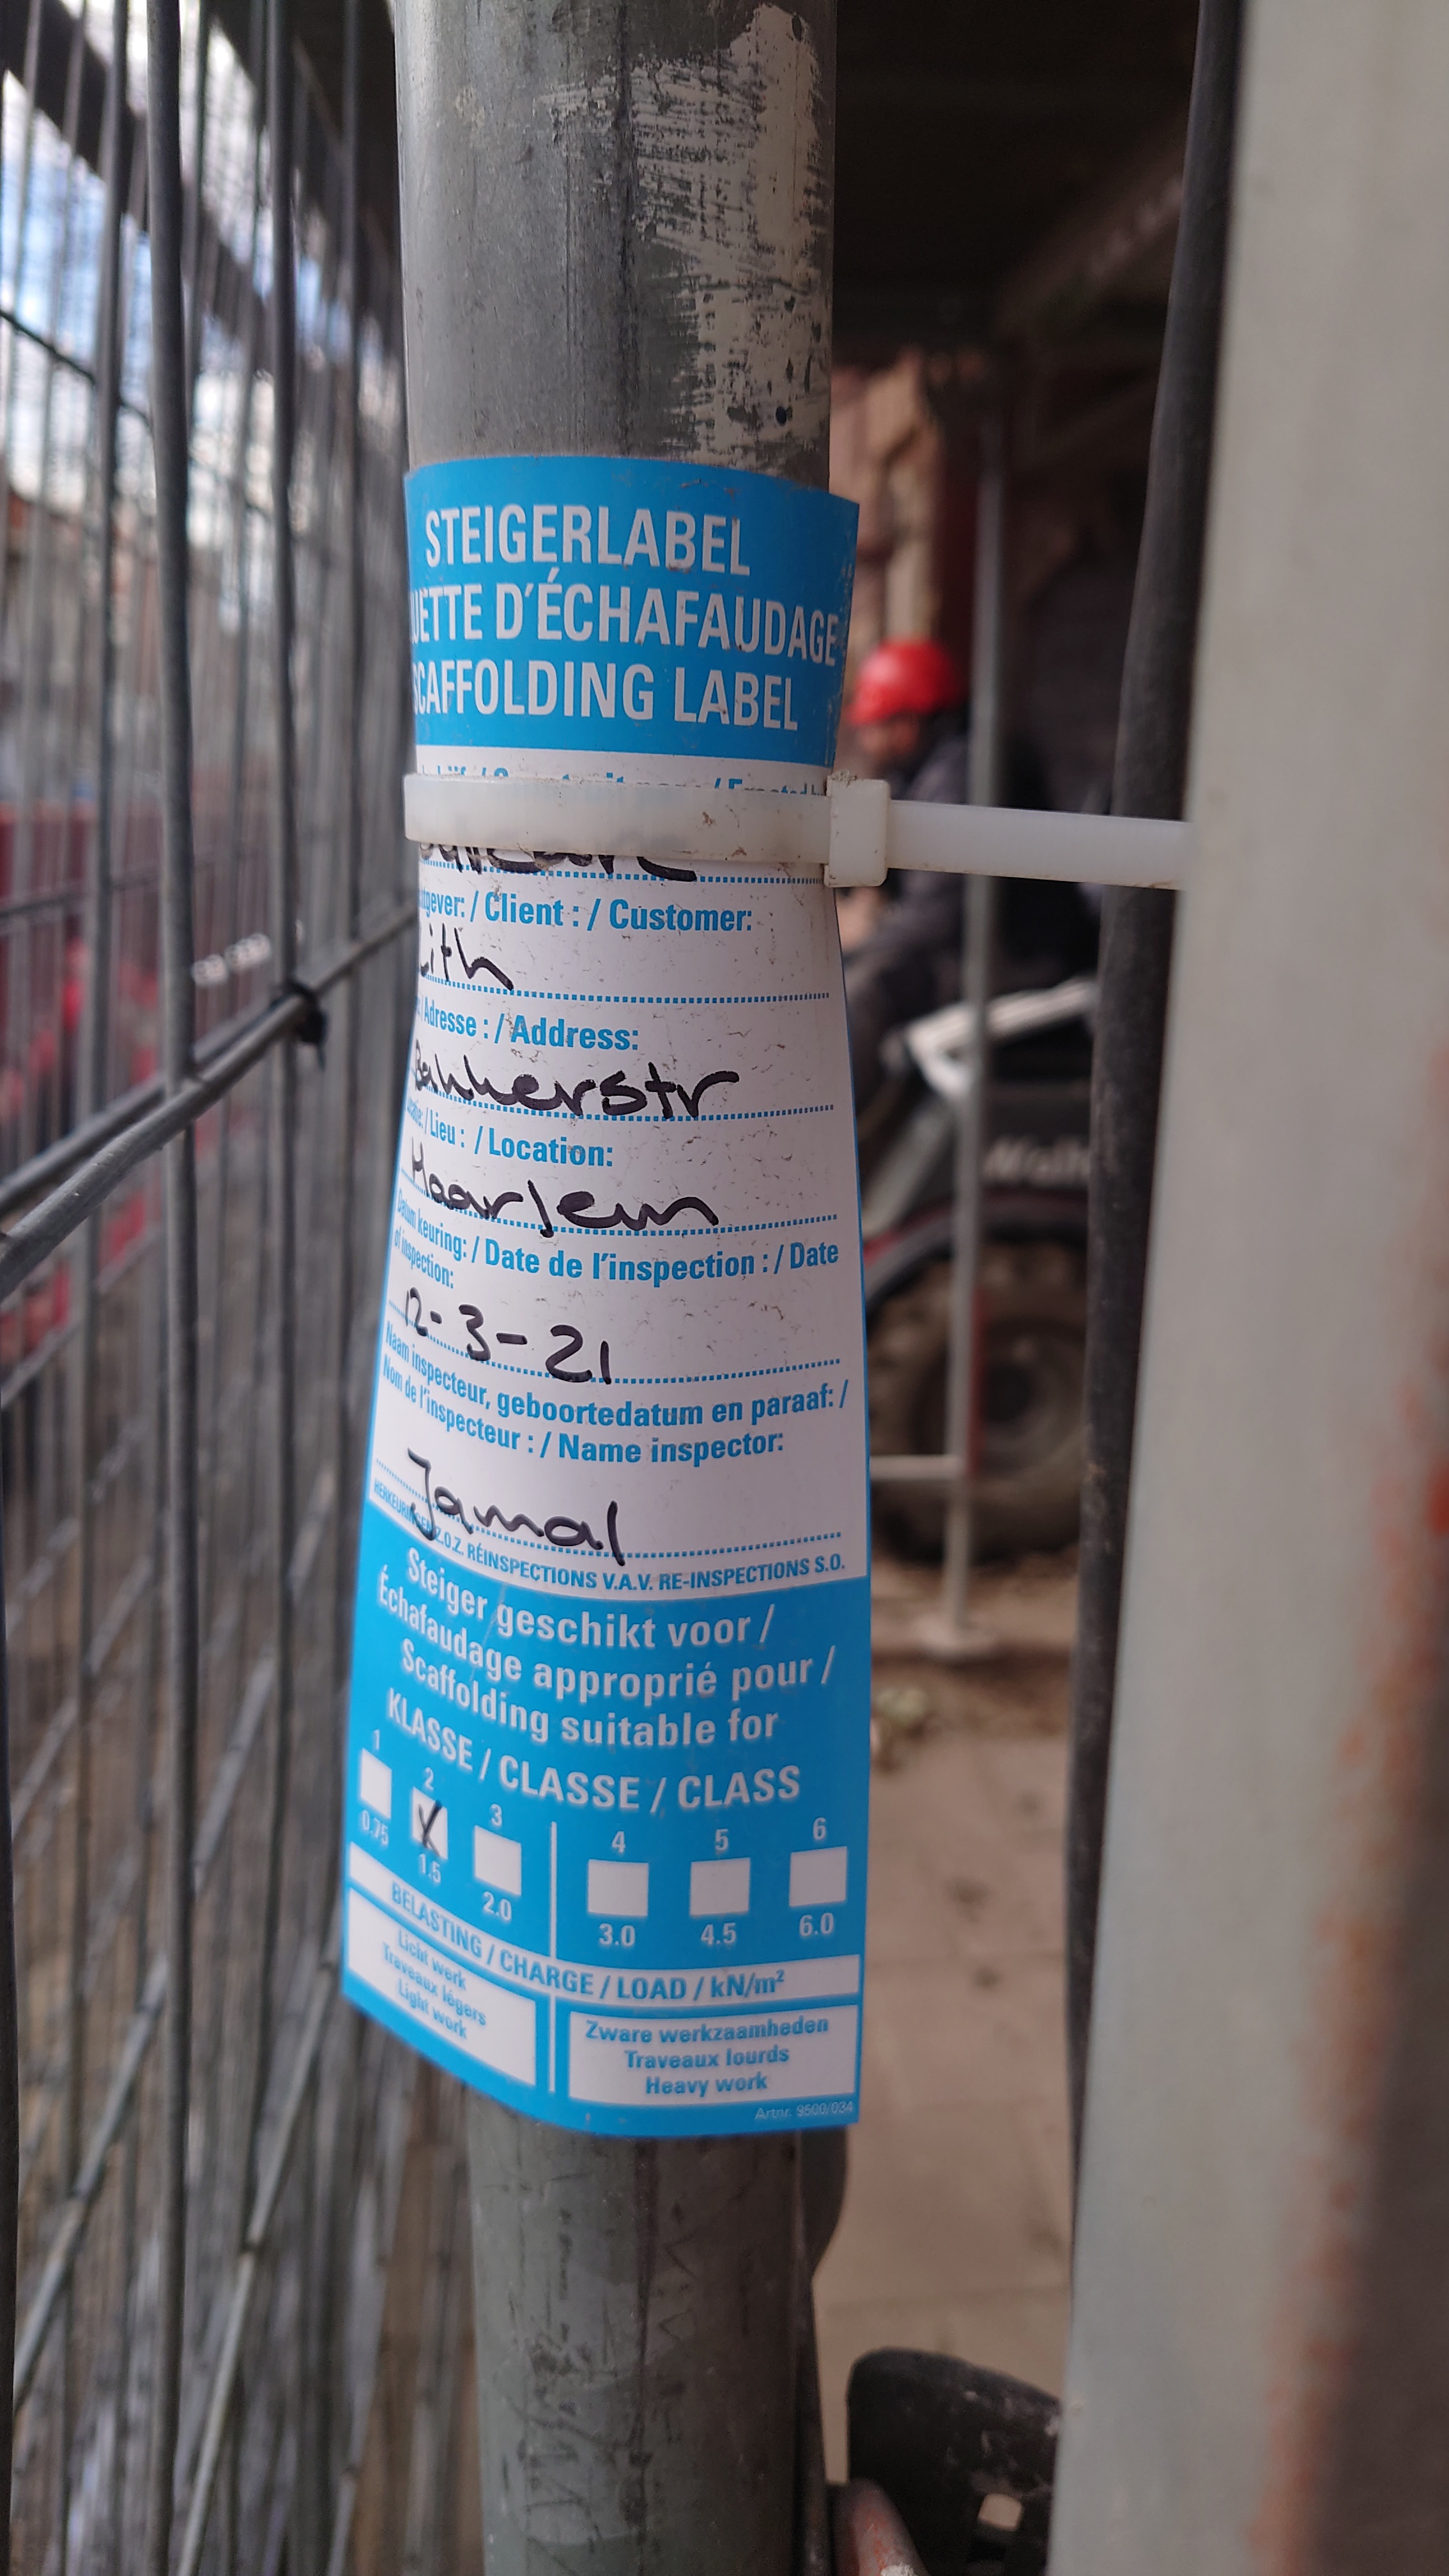 STEIGERLABEL
UETTE D'ÉCHAFAUDAGE
SCAFFOLDING LABEL
tgever: / Client : / Customer:
Lith
Adresse : / Address:
Bakkerstr
/ Lieu : / Location:
Haarlem
Datum keuring: / Date de l'inspection : / Date
of inspection:
12-3-21
Naam inspecteur, geboortedatum en paraaf: /
Nom de l'inspecteur : / Name inspector:
Jamal
HERKEURINGEN Z.O.Z. RÉINSPECTIONS V.A.V. RE-INSPECTIONS S.O.
Steiger geschikt voor /
Échafaudage approprié pour /
Scaffolding suitable for
KLASSE / CLASSE / CLASS
1 2 3 4 5 6
X
0.75 1.5 2.0 3.0 4.5 6.0
BELASTING / CHARGE / LOAD / kN/m²
Licht werk
Traveaux légers
Light work
Zware werkzaamheden
Traveaux lourds
Heavy work
Artnr. 9500/034